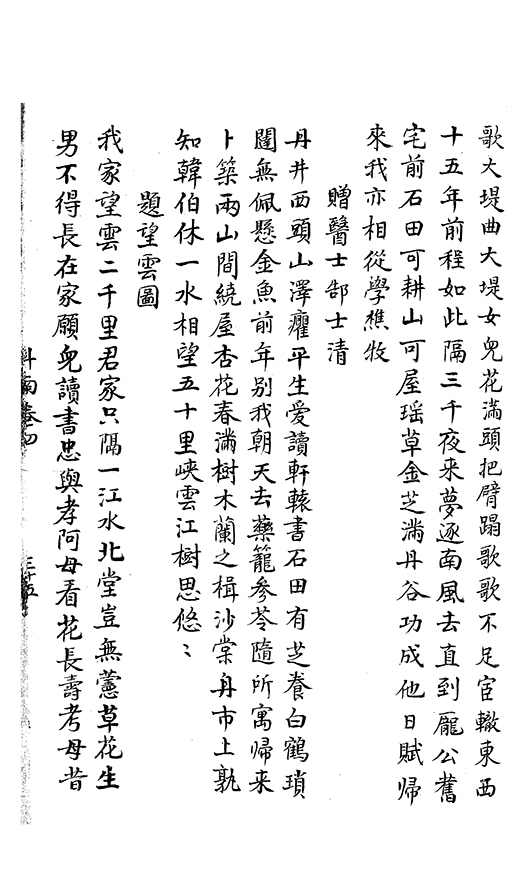 歌大堤曲大堤女兒花滿頭把臂蹋歌歌不足宦轍東西
十五年前程如此隔三千夜来夢逐南風去直到龐公舊
宅前石田可耕山可屋瑶草金芝满丹谷功成他日賦歸
來我亦相從學樵牧
贈醫士郜士清
丹井西頭山澤癯平生爱讀軒轅書石田有芝養白鶴瑣
闥無佩懸金魚前年別我朝天去藥籠參苓隨所寓歸来
卜築兩山間繞屋杏花春滿樹木蘭之楫沙棠舟市上孰
知韓伯休一水相望五十里峽雲江樹思悠〻
題望雲圖
我家望雲二千里君家只隔一江水北堂豈無藼草花生
男不得長在家願兒讀書忠與孝阿母看花長壽考母昔
斗南卷四
三十五